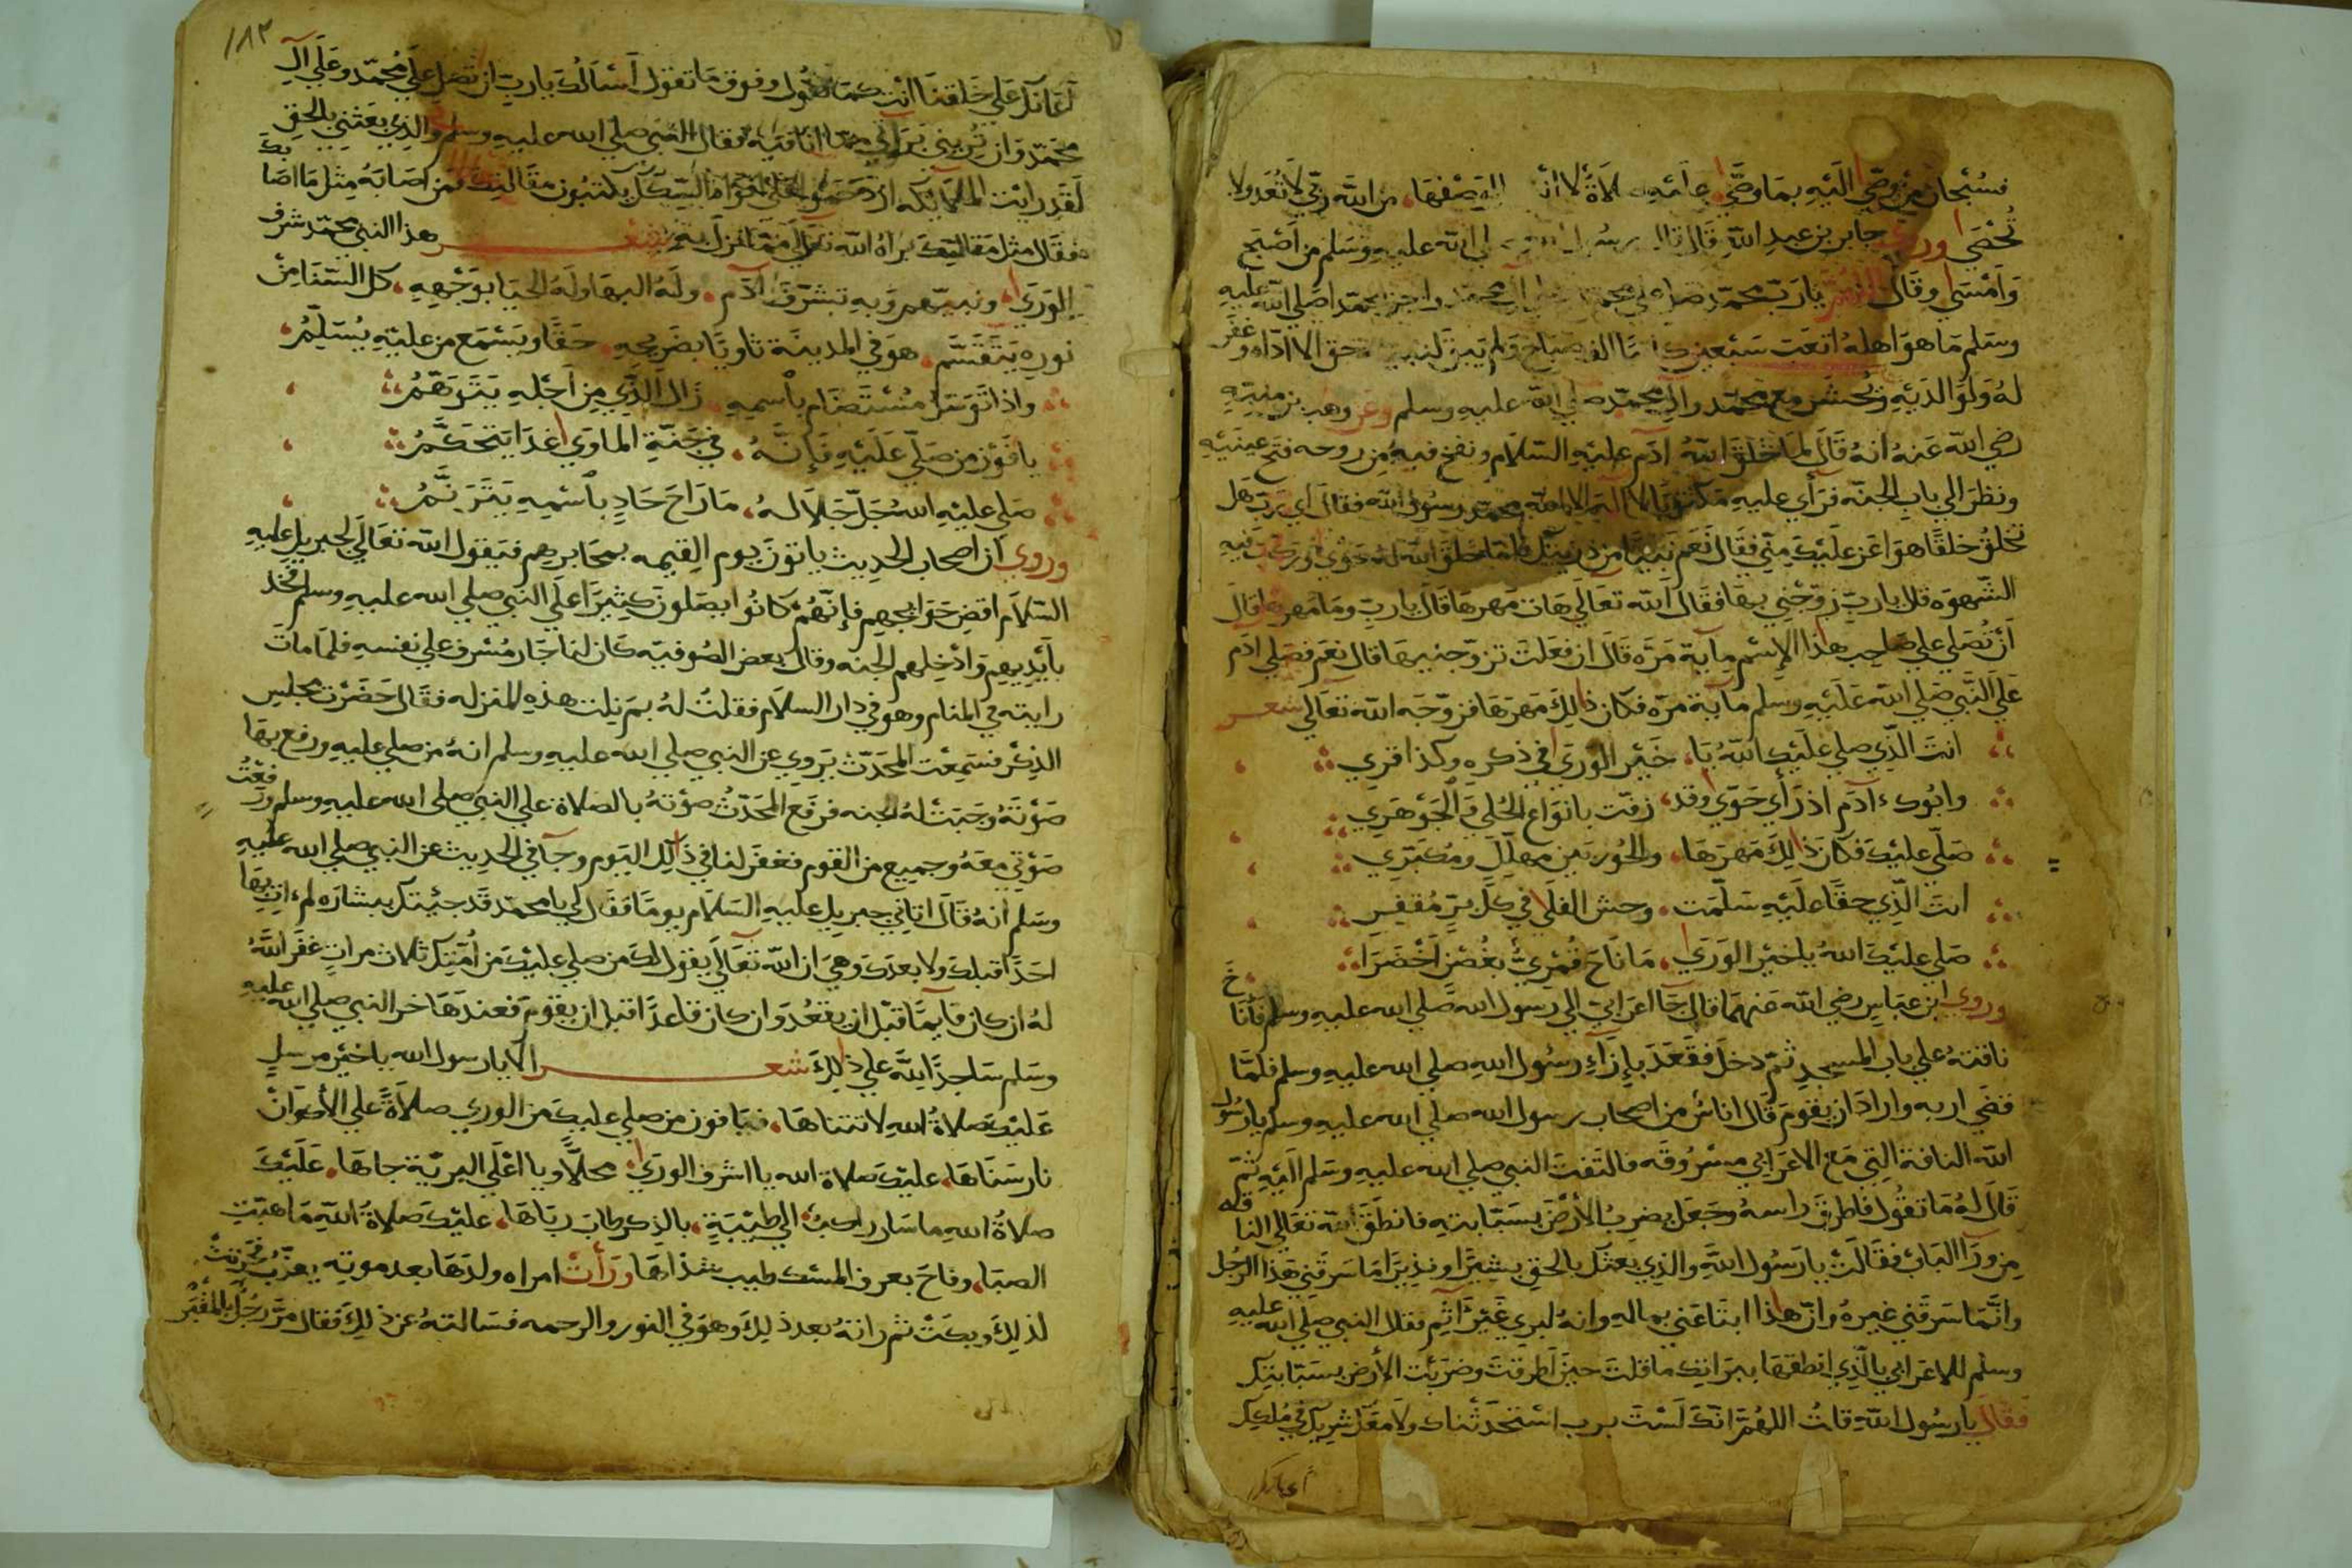 فسُبْحان من وصّي اليه بما وصّي عليه صلاةً لا يصفها من الله ربي لا تُعَد ولا
تُحْصَي وروي جابر بن عبد الله قال قال رسول الله صلي الله عليه وسَلم من أصْبح
وَامْسَي وقَال اللهم يا ربّ محمّد صل علي محمد وعلي آل محمد واجز محمّدا صلي الله عليه
وسَلم ما هو اهلهُ اتعَبَ سَبْعين كاتبًا الف صباح ولم يبق لنبيه حق الا ادّاه وغفر
لهُ ولوَالدَيْهِ وَيُحْشَر مع محمّد وال محمّد صلي الله عليه وسلم وعن وهب بن منبّه
رضي الله عَنهُ انهُ قَالَ لما خلق اللهُ ادَم عليْهِ السّلام ونفخ فيهِ من روحه فتح عينَيْه
ونظرَ الي باب الجنّه فرَأي عليهِ مَكتوبًا لا اله الا الله محمّد رسُول الله فقالَ اي ربّ هَل
تخلقُ خلقًا هوَ اعَز عليْكَ منّي فقَال نعَم نبيًّا من ذريتك فلمّا خلق الله له حَوّي وركب فيه
الشّهوَه قال يا ربّ زوّجْني بها فقَال الله تعَالي هات مَهرهَا قَال يا ربّ ومَا مهرها قال
أنْ تُصَلي علي صَاحب هذا الإسْم مايَة مَرّه قَالَ ان فعَلت تزوّجنيها قال نعَم فصَلي ادَم
عَلي النَّبي صَلي الله عَلَيْهِ وسلم مايَة مرّه فكان ذالِكَ مَهرَهَا فزوّجَه الله تعَالي شعر
انتَ الّذِي صلي عليْكَ اللهُ يَا خَيْر الوَرَي في ذكره وكذا قري
وابُوكَ آدَم اذ رَأي حَوّي وقد زفّت بانوَاع الحُلي والجَوْهَري
صَلّي عليْكَ فكان ذالِكَ مَهرَهَا والحُور بَين مهلِّل ومُكبّري
انتَ الّذِي حقًا عليْه سَلّمَت وحش الفلَي في كلّ برٍّ مُقفِر
صَلي عليْكَ اللهُ يا خيْر الوَرَي مَا نَاحَ قُمْريٌّ بغُصْنٍ أخْضَرَا
وروي ابن عبَاسٍ رضي الله عَنهمَا قال جَآ اعرَابيّ الي رسول الله صَلي الله عليهِ وسلم فأنَاخَ
ناقتهُ علي باب المسجِد ثمّ دخلَ فقَعَدَ بإزآءِ رسُول اللهِ صلي الله عليه وسلم فلمَّا
قضَي اربه وارادَ ان يقومَ قَالَ اناسٌ من اصحاب رسول الله صلي الله عليه وسلم يا رسُول
الله الناقة التي مع الاعرَابي مسْرُوقَه فالتَفتَ النبي صلي الله عليه وسَلم اليْهِ ثمّ
قَالَ لهُ مَا تقُول فاطرقَ راسهُ وجَعَل يضربُ الأرْضَ بسَبّابتهِ فانطَقَ الله تعَالي الناقه
من ورَآ البَاب فقَالَتْ يا رَسُول اللهِ والذي بعثكَ بالحق بشيرًا ونذيرًا مَا سَرقَني هَذا الرّجُل
وانّمَا سَرقني غيرهُ وانّ هاذا ابتَاعَني بماله وانهُ لبري غَيْر آثِم فقال النبي صلي الله عليه
وسلم للاعرَابي بالّذي انطقهَا ببرَاتك ما قلتَ حين أطرقتَ وضرَبْت الأرض بسَبّابتِك
فقال يا رسُول اللهِ قلتُ اللهُمَّ انّكَ لَسْتَ برب اسْتَحدَثناك ولا معَك شريك في مُلكِك
١٨٢
أعَانَك عَلي خَلقنَا انْتَ كمَا تقُول وفوق مَا تقول أسْألُكَ يا ربّ ان تصَل علي محمّد وعَلي آل
محمّد وَان تُريني بَرَآتي ممّا انا فيه فقال النبي صلي الله عليه وسلم والذي بعَثني بالحَق
لقَد رايْتُ الملآئكه ازدَحَمُوا علي افواه السّكك يكتبُون مقَالتك فمن اصَابهُ مثل مَا اصَابك
فقَال مثل مَقَالتِك برّاهُ الله تعَالي ممّا نزل به شعر هذا النبي محمّد شرف
الوَرَي ونبيّهم وَبهِ تشرّفَ آدَم ولهُ البهَا ولهُ الحيَا بوَجْههِ كل السّنَا مِنْ
نورهِ يَتَقَسَّم هوَ في المدينَة ثاويًا بضَريحِهِ حَقًّا ويَسْمَع من عليْهِ يُسَلِّمُ
واذا توَسّل مُسْتَضَام بٱسْمِهِ زال الّذِي مِن أجْلِهِ يَتَوَهّمُ
يا فَوْز من صَلّي عَلَيْهِ فَإنَّهُ في جَنّةِ الماوَي غدًا يتَحَكَّمُ
صَلي عليْهِ اللهُ جَلّ جَلالهُ مَا رَاحَ حَادٍ بٱسْمِهِ يَتَرَنَّمُ
وروي أن اصحاب الحَدِيث ياتونَ يوم القِيمه بمحَابرهم فيَقول الله تعَالي لجبريل عليه
السّلَام اقضِ حَوَائجهم فإنّهُمْ كانُوا يصَلونَ كثيرًا علي النبي صلي الله عليه وسلم خُذ
بأيْدِيهِم وَادْخِلهم الجنه وقال بعض الصُوفيّه كَان لنا جَار مُسْرف علي نفسهِ فلمَا ماتَ
رايته في المنام وهوَ في دار السلَام فقلتُ لهُ بمَ نِلت هذهِ المنزله فقَال حَضَرْت مجلِس
الذِكْر فسَمِعْت المحَدّث يَروي عن النبي صلي الله عليه وسلم انهُ من صلي عليهِ ورفع بهَا
صَوْتَهُ وَجَبَتْ لهُ الجنه فرفَع المحَدّثُ صوْتهُ بالصلاة علي النبي صلي الله عليه وسلم ورفعْتُ
صَوْتي معَهُ وجميع من القوم فغفَر لنا في ذالِكَ اليَوم وجآ في الحَدِيث عن النبي صلي الله عليه
وسَلم أنهُ قَالَ اتاني جبريل عليهِ السّلَام يومًا فقَال لي يا محمّد قَد جئيتكَ ببشارَه لم اتِ بهَا
احَدًا قبلكَ ولا بعدَكَ وهيَ ان الله تَعالي يقول لكَ من صلي عليْكَ من أمّتِك ثلاث مرات غفَر اللهُ
لهُ ان كان قآيمًا قبْل ان يقعُدَ وَان كان قاعدًا قبل ان يقومَ فعندَهَا خر النبي صلي الله عليه
وسَلم سَاجدًا للهِ علي ذالِكَ شعر ألا يا رسول الله يا خيْر مرسلٍ
عَليْك صَلاةُ اللهِ لا تتناهَا فيَا فوز من صلي عليكَ من الوري صلاةً علي الأضوان
نار سَنَاهَا عليْكَ صلاة الله يا اشرف الورَي محلًّا ويا اعْلَي البريّة جاهَا عَليْكَ
صلاةُ اللهِ ما سَار راكبٌ الي طيْبَةٍ بالذِكر طابَ ربَاهَا عليْكَ صَلاةُ اللهِ مَا هبّت
الصبَا وفاحَ بعرف المسْك طيب شذاهَا ورَأتْ امراه ولدَهَا بعد موته يعذّب فحزنتْ
لذلِكَ وبكَتْ ثم راتهُ بعد ذلِكَ وهوَ في النور والرحمه فسَالتهُ عن ذلِكَ فقال مرّ رجُل بالمقبَره